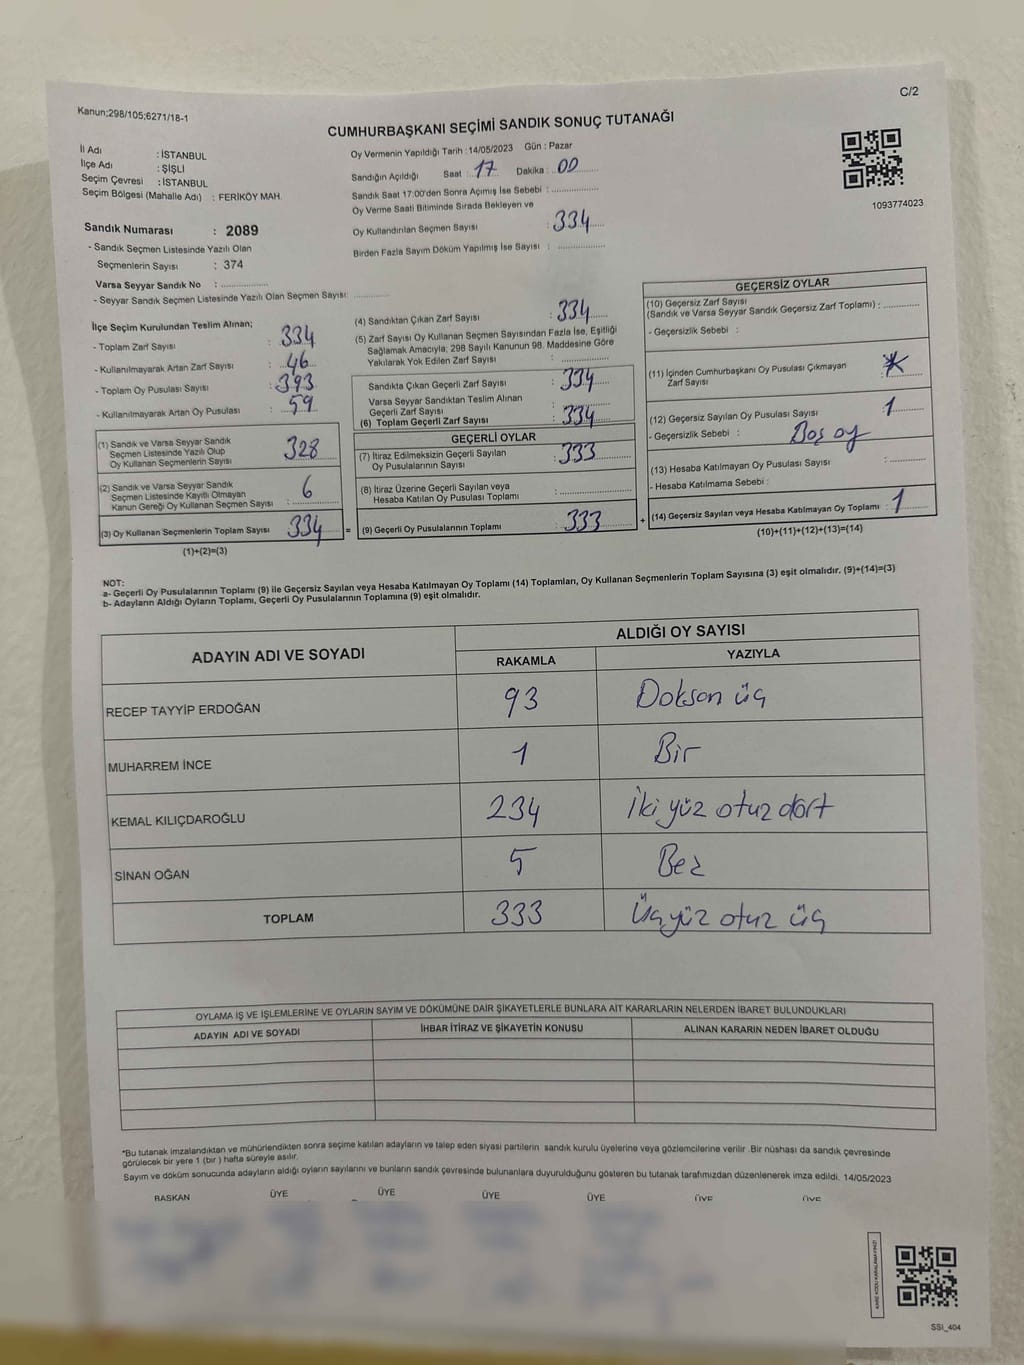 C/2
Kanun;298/105;6271/18-1
CUMHURBAŞKANI SEÇİMİ SANDIK SONUÇ TUTANAĞI
İl Adı : İSTANBUL
İlçe Adı : ŞİŞLİ
Seçim Çevresi : İSTANBUL
Seçim Bölgesi (Mahalle Adı) : FERİKÖY MAH.
Sandık Numarası : 2089
- Sandık Seçmen Listesinde Yazılı Olan
Seçmenlerin Sayısı : 374
Varsa Seyyar Sandık No : ....................
- Seyyar Sandık Seçmen Listesinde Yazılı Olan Seçmen Sayısı: ............
Oy Vermenin Yapıldığı Tarih : 14/05/2023 Gün : Pazar
Sandığın Açıldığı Saat : 17 Dakika : 00
Sandık Saat 17:00'den Sonra Açımış İse Sebebi : ....................
Oy Verme Saati Bitiminde Sırada Bekleyen ve
Oy Kullandırılan Seçmen Sayısı : 334
Birden Fazla Sayım Döküm Yapılmış İse Sayısı : ....................
1093774023
İlçe Seçim Kurulundan Teslim Alınan;
- Toplam Zarf Sayısı : 334
- Kullanılmayarak Artan Zarf Sayısı : 46
- Toplam Oy Pusulası Sayısı : 393
- Kullanılmayarak Artan Oy Pusulası : 59
(1) Sandık ve Varsa Seyyar Sandık
Seçmen Listesinde Yazılı Olup
Oy Kullanan Seçmenlerin Sayısı 328
(2) Sandık ve Varsa Seyyar Sandık
Seçmen Listesinde Kayıtlı Olmayan
Kanun Gereği Oy Kullanan Seçmen Sayısı : 6
(3) Oy Kullanan Seçmenlerin Toplam Sayısı 334 =
(1)+(2)=(3)
(4) Sandıktan Çıkan Zarf Sayısı : 334
(5) Zarf Sayısı Oy Kullanan Seçmen Sayısından Fazla İse, Eşitliği
Sağlamak Amacıyla; 298 Sayılı Kanunun 98. Maddesine Göre
Yakılarak Yok Edilen Zarf Sayısı : ............
Sandıkta Çıkan Geçerli Zarf Sayısı : 334
Varsa Seyyar Sandıktan Teslim Alınan
Geçerli Zarf Sayısı : ............
(6) Toplam Geçerli Zarf Sayısı : 334
GEÇERLİ OYLAR
(7) İtiraz Edilmeksizin Geçerli Sayılan
Oy Pusulalarının Sayısı : 333
(8) İtiraz Üzerine Geçerli Sayılan veya
Hesaba Katılan Oy Pusulası Toplamı : ....................
(9) Geçerli Oy Pusulalarının Toplamı : 333 +
GEÇERSİZ OYLAR
(10) Geçersiz Zarf Sayısı
(Sandık ve Varsa Seyyar Sandık Geçersiz Zarf Toplamı) : ............
- Geçersizlik Sebebi :
(11) İçinden Cumhurbaşkanı Oy Pusulası Çıkmayan
Zarf Sayısı : *
(12) Geçersiz Sayılan Oy Pusulası Sayısı : 1
- Geçersizlik Sebebi : Boş oy
(13) Hesaba Katılmayan Oy Pusulası Sayısı : ............
- Hesaba Katılmama Sebebi :
(14) Geçersiz Sayılan veya Hesaba Katılmayan Oy Toplamı : 1
(10)+(11)+(12)+(13)=(14)
NOT:
a- Geçerli Oy Pusulalarının Toplamı (9) ile Geçersiz Sayılan veya Hesaba Katılmayan Oy Toplamı (14) Toplamları, Oy Kullanan Seçmenlerin Toplam Sayısına (3) eşit olmalıdır. (9)+(14)=(3)
b- Adayların Aldığı Oyların Toplamı, Geçerli Oy Pusulalarının Toplamına (9) eşit olmalıdır.
ADAYIN ADI VE SOYADI ALDIĞI OY SAYISI
RAKAMLA YAZIYLA
RECEP TAYYİP ERDOĞAN 93 Doksan üç
MUHARREM İNCE 1 Bir
KEMAL KILIÇDAROĞLU 234 İki yüz otuz dört
SİNAN OĞAN 5 Beş
TOPLAM 333 Üçyüz otuz üç
OYLAMA İŞ VE İŞLEMLERİNE VE OYLARIN SAYIM VE DÖKÜMÜNE DAİR ŞİKAYETLERLE BUNLARA AİT KARARLARIN NELERDEN İBARET BULUNDUKLARI
ADAYIN ADI VE SOYADI İHBAR İTİRAZ VE ŞİKAYETİN KONUSU ALINAN KARARIN NEDEN İBARET OLDUĞU
*Bu tutanak imzalandıktan ve mühürlendikten sonra seçime katılan adayların ve talep eden siyasi partilerin sandık kurulu üyelerine veya gözlemcilerine verilir .Bir nüshası da sandık çevresinde
görülecek bir yere 1 (bir ) hafta süreyle asılır.
Sayım ve döküm sonucunda adayların aldığı oyların sayılarını ve bunların sandık çevresinde bulunanlara duyurulduğunu gösteren bu tutanak tarafımızdan düzenlenerek imza edildi. 14/05/2023
BAŞKAN ÜYE ÜYE ÜYE ÜYE ÜYE ÜYE
KARE KODU KARALAMAYINIZ!
SSI_404